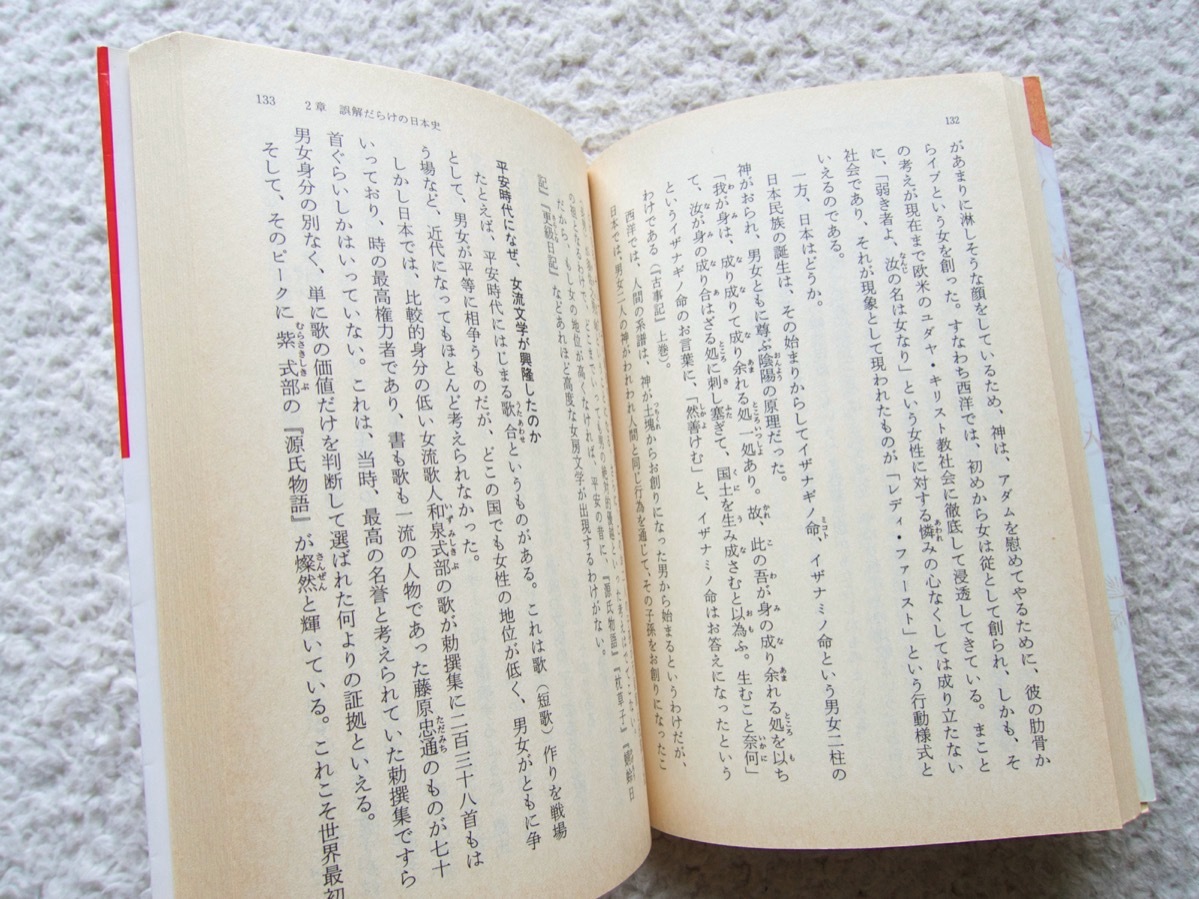 132
があまりに淋しそうな顔をしているため、神は、アダムを慰めてやるために、彼の肋骨か
らイブという女を創った。すなわち西洋では、初めから女は従として創られ、しかも、そ
の考えが現在まで欧米のユダヤ・キリスト教社会に徹底して浸透してきている。まこと
に、「弱き者よ、汝の名は女なり」という女性に対する憐みの心なくしては成り立たない
社会であり、それが現象として現われたものが「レディ・ファースト」という行動様式と
いえるのである。
一方、日本はどうか。
日本民族の誕生は、その始まりからしてイザナギノ命、イザナミノ命という男女二柱の
神がおられ、男女ともに尊ぶ陰陽の原理だった。
「我が身は、成り成りて成り余れる処一処あり。故、此の吾が身の成り余れる処を以ち
て、汝が身の成り合はざる処に刺し塞ぎて、国土を生み成さむと以為ふ。生むこと奈何」
というイザナギノ命のお言葉に、「然善けむ」と、イザナミノ命はお答えになったという
わけである（『古事記』上巻）。
西洋では、人間の系譜は、神が土塊からお創りになった男から始まるというわけだが、
日本では、男女二人の神がわれわれ人間と同じ行為を通じて、その子孫をお創りになったこ
133 2章 誤解だらけの日本史
だから、もし女の地位が高くなければ、平安の昔に、『源氏物語』『枕草子』『蜻蛉日
記』『更級日記』などあれほど高度な女房文学が出現するわけがない。
平安時代になぜ、女流文学が興隆したのか
たとえば、平安時代にはじまる歌合というものがある。これは歌（短歌）作りを戦場
として、男女が平等に相争うものだが、どこの国でも女性の地位が低く、男女がともに争
う場など、近代になってもほとんど考えられなかった。
しかし日本では、比較的身分の低い女流歌人和泉式部の歌が勅撰集に二百三十八首もは
いっており、時の最高権力者であり、書も歌も一流の人物であった藤原忠通のものが七十
首ぐらいしかはいっていない。これは、当時、最高の名誉と考えられていた勅撰集ですら
男女身分の別なく、単に歌の価値だけを判断して選ばれた何よりの証拠といえる。
そして、そのピークに紫式部の『源氏物語』が燦然と輝いている。これこそ世界最初